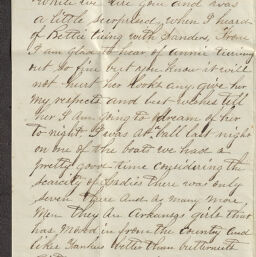 while we are you and was
a little surprised when I heard
of Bettie living with Sanders, from
I am glad to hear of Annie turning
out so fine but you know it will
not hurt her looks any, give her
my respects and best wishes tell
her I am going to dream of her
to night I was at a ball last night
on one of the boats we had a
pretty good time considering the
scarcity of Ladies there was only
seven there and as many more
Men they are Arkansas girls that
has moved in from the County and
likes Yankees better than butternuts